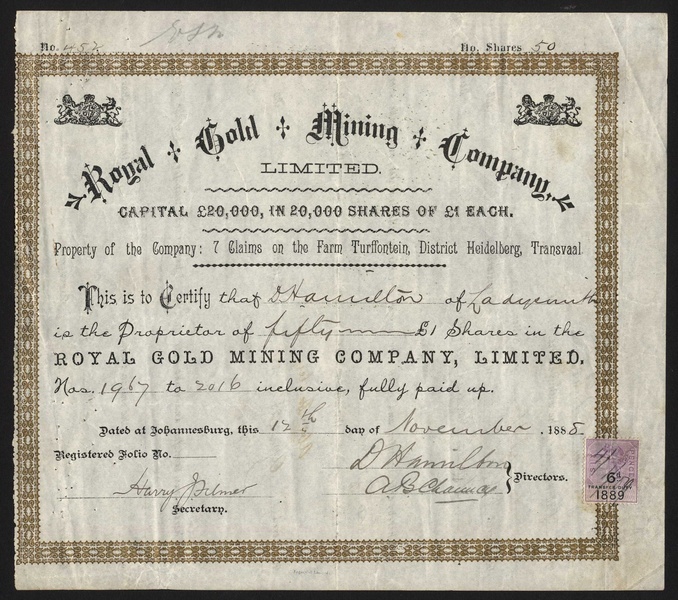 No. 452 No. Shares 50
Royal Gold Mining Company,
LIMITED.
CAPITAL £20,000, IN 20,000 SHARES OF £1 EACH.
Property of the Company: 7 Claims on the Farm Turffontein, District Heidelberg, Transvaal
This is to Certify that D Hamilton of Ladysmith
is the Proprietor of fifty £1 Shares in the
ROYAL GOLD MINING COMPANY, LIMITED.
Nos. 1967 to 2016 inclusive, fully paid up.
Dated at Johannesburg, this 12th day of November, 1888.
Registered Folio No.
D Hamilton
Directors.
Harry
Secretary.
6d
TRANSFER DUTY
1889